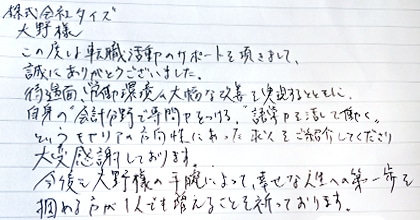 株式会社タイズ
大野様
この度は転職活動のサポートを頂きまして、
誠にありがとうございました。
待遇面、労働環境の大幅な改善を実現するとともに、
自身の"会計分野で専門力をつける""語学力を活して働く"
というキャリアの方向性にあった求人をご紹介してくださり
大変感謝しております。
今後も大野様の手腕によって、幸せな人生への第一歩を
掴める方が1人でも増えることを祈っております。